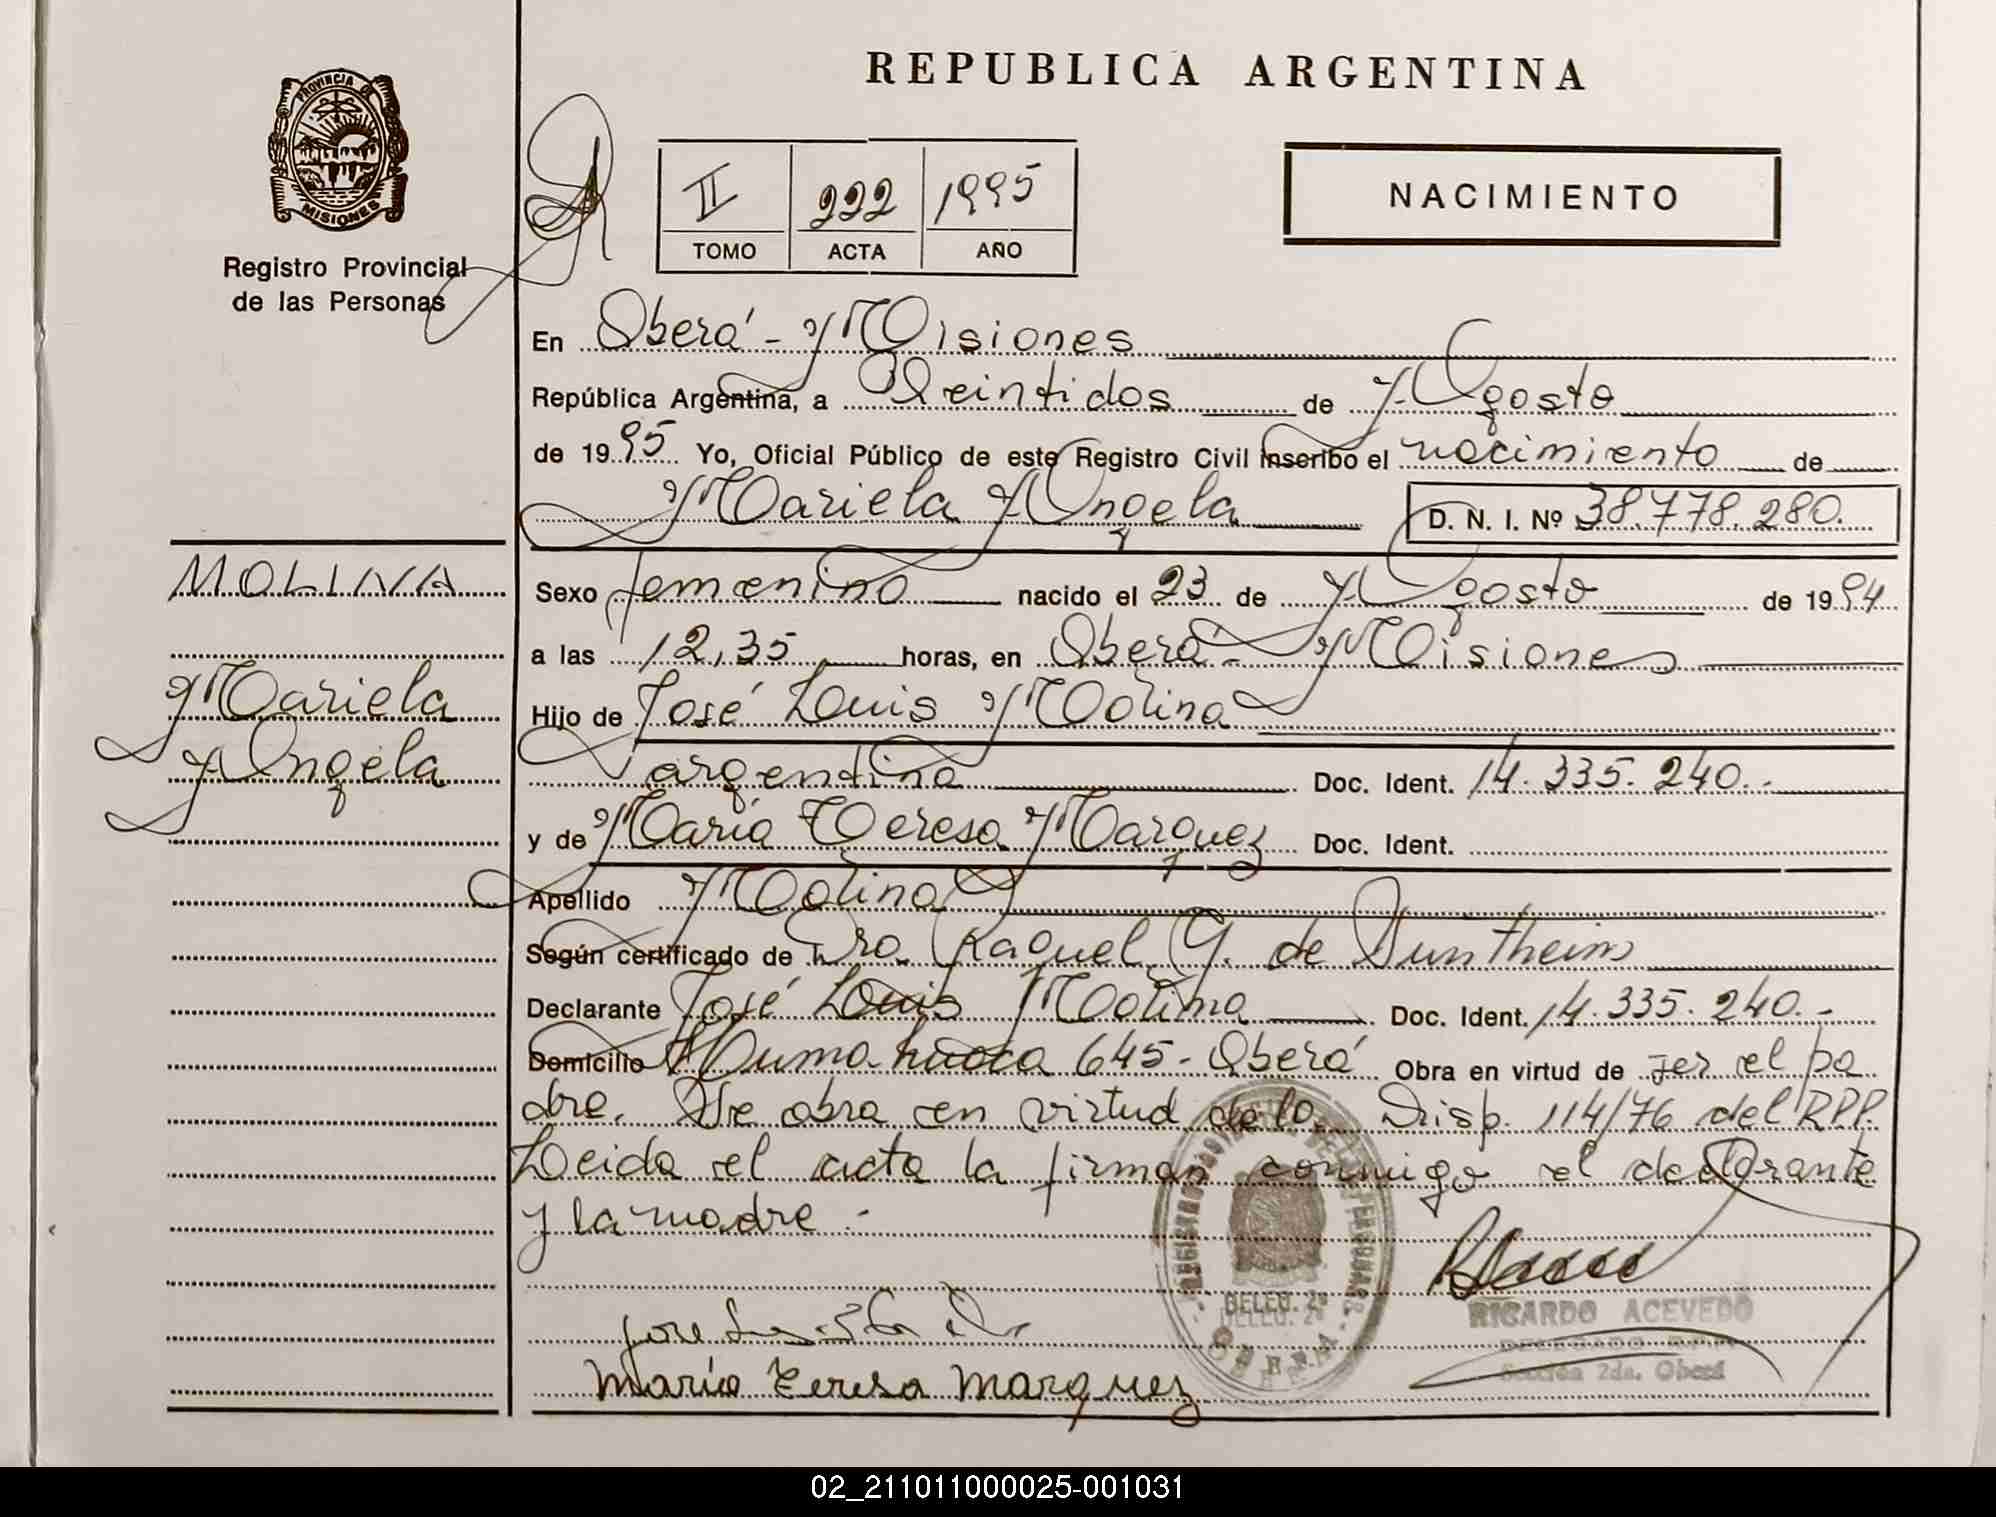 REPUBLICA ARGENTINA
PROVINCIA DE
MISIONES
Registro Provincial
de las Personas
II 222 1995
TOMO ACTA AÑO
NACIMIENTO
En Oberá - Misiones
República Argentina, a Veintidos de Agosto
de 1995 Yo, Oficial Público de este Registro Civil inscribo el nacimiento de
Mariela Angela D. N. I. Nº 38.778.280.
MOLINA
Mariela
Angela
Sexo femenino nacido el 23 de Agosto de 1994
a las 12,35 horas, en Oberá - Misiones
Hijo de José Luis Molina
argentino Doc. Ident. 14.335.240.-
y de María Teresa Marquez Doc. Ident.
Apellido Molina
Según certificado de Dra. Raquel G. de
Declarante José Luis Molina Doc. Ident. 14.335.240.-
Domicilio Humahuaca 645 - Oberá Obra en virtud de ser el pa
dre. Se obra en virtud de la Disp. 114/76 del R.P.P.
Leida el acta la firman conmigo el declarante
y la madre.-
DELEG. 2ª
OBERA
RICARDO ACEVEDO
DELEGADO
Sección 2da. Oberá
Jose Luis
Maria Teresa Marquez
02_211011000025-001031